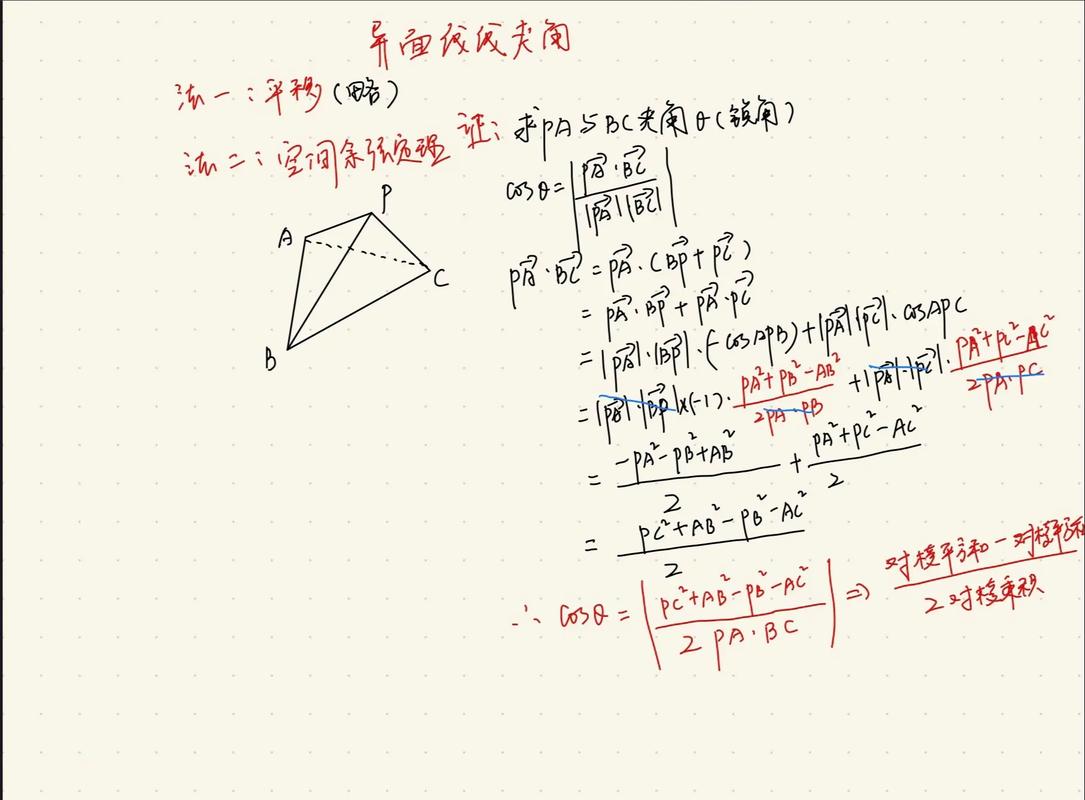 异面线线夹角
法一：平移(略)
法二：空间余弦定理 证：求PA与BC夹角θ(锐角)
cosθ=|\frac{\vec{PA}·\vec{BC}}{|\vec{PA}||\vec{BC}|}|
P
A
C
B
\vec{PA}·\vec{BC}=\vec{PA}·(\vec{BP}+\vec{PC})
=\vec{PA}·\vec{BP}+\vec{PA}·\vec{PC}
=|\vec{PA}|·|\vec{BP}|·(-cosAPB)+|\vec{PA}||\vec{PC}|·cosAPC
=|\vec{PA}|·|\vec{BP}|×(-1)·\frac{PA²+PB²-AB²}{2PA·PB}+|\vec{PA}|·|\vec{PC}|·\frac{PA²+PC²-AC²}{2PA·PC}
=\frac{-PA²-PB²+AB²}{2}+\frac{PA²+PC²-AC²}{2}
=\frac{PC²+AB²-PB²-AC²}{2}
∴ cosθ=|\frac{PC²+AB²-PB²-AC²}{2PA·BC}| ⇒ \frac{对棱平方和-对棱平方和}{2对棱乘积}